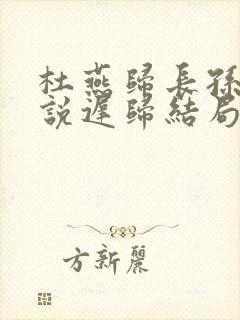 杜燕歸長孫
說遲歸結局
方新麗